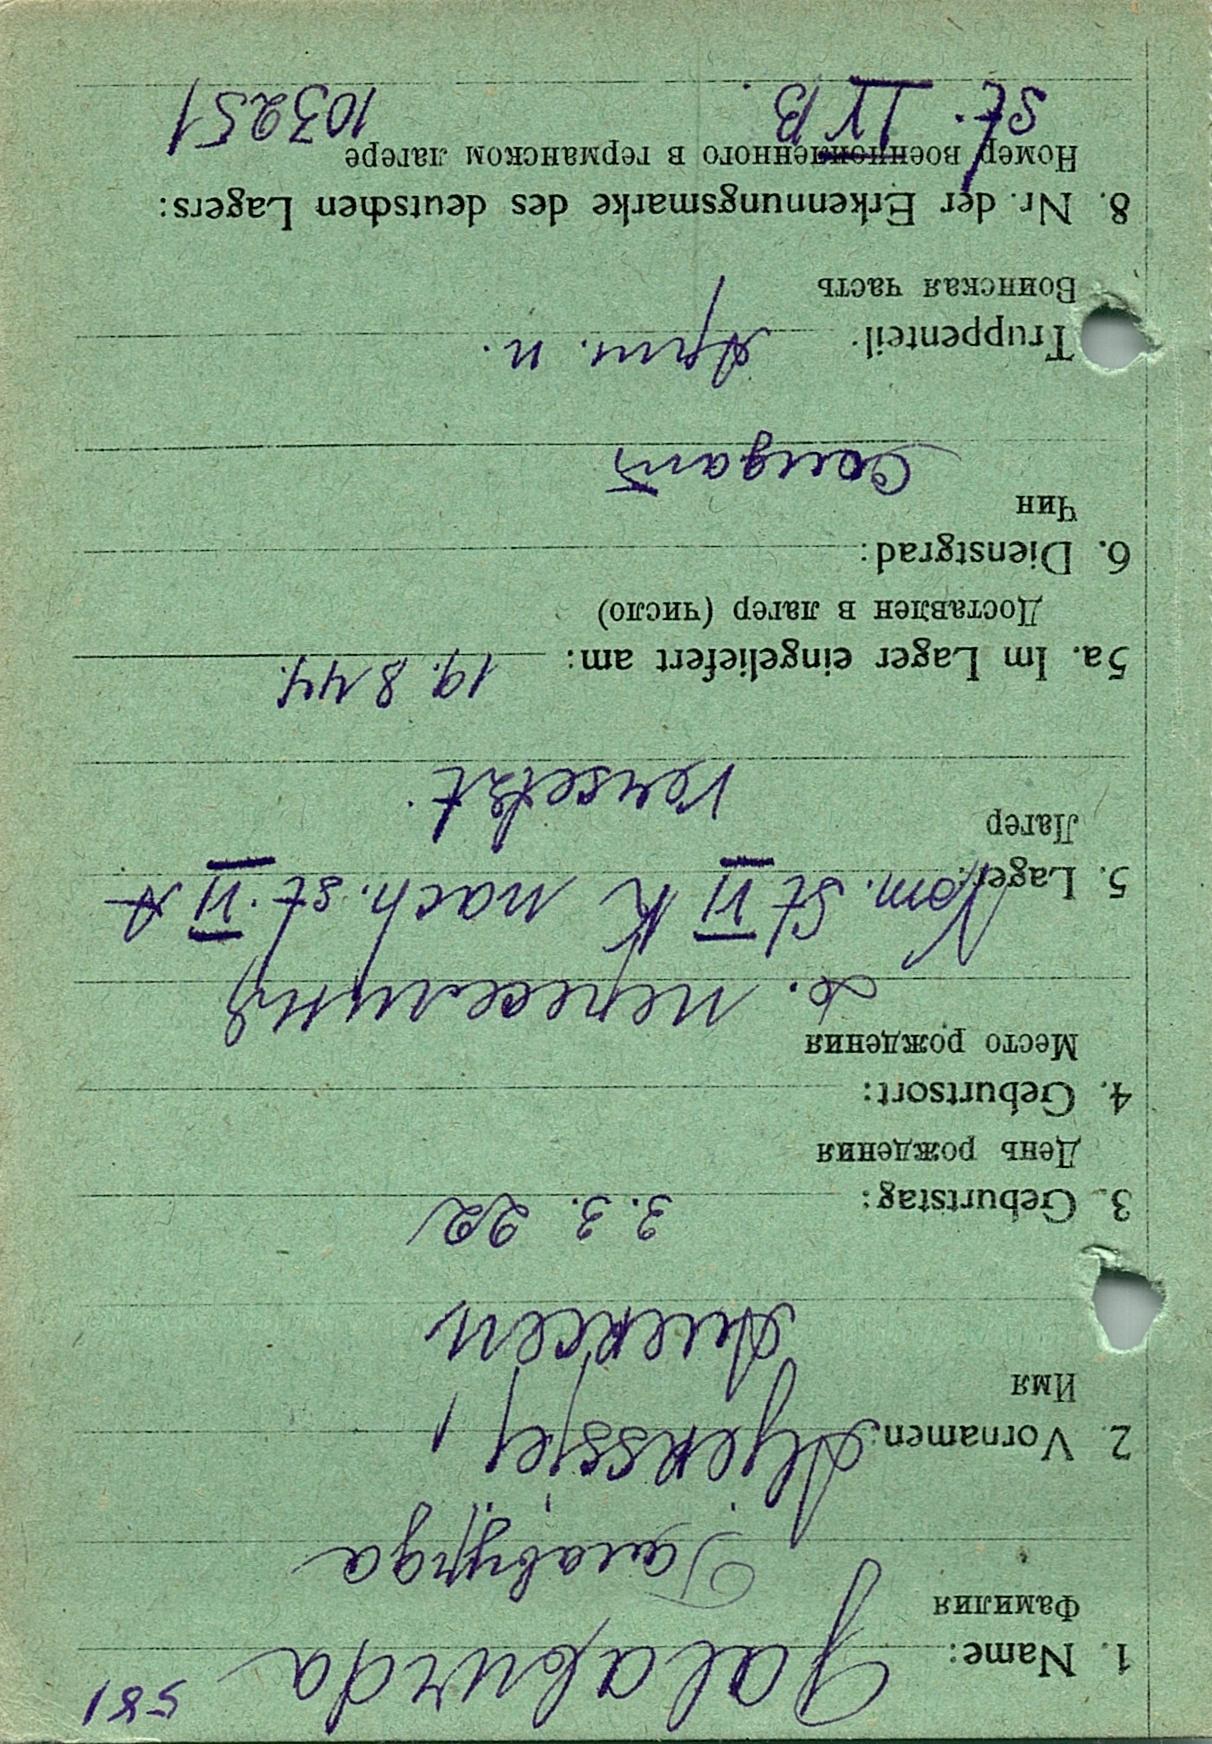 581
1. Name: Galaburda
Фамилия Галабурда
2. Vornamen: Aljekssjej,
Имя Алексей
3. Geburtstag: 3. 3. 22
День рождения
4. Geburtsort:
Место рождения
5. Lager: Vom. St VI K nach. st. VI A
Лагер versetzt.
5a. Im Lager eingeliefert am: 19. 8 44.
Доставлен в лагер (число)
6. Dienstgrad:
Чин Солдат
Truppenteil: Арт. п.
Воинская часть
8. Nr. der Erkennungsmarke des deutschen Lagers:
Номер военнопленного в германском лагере
st. IV B. 103251